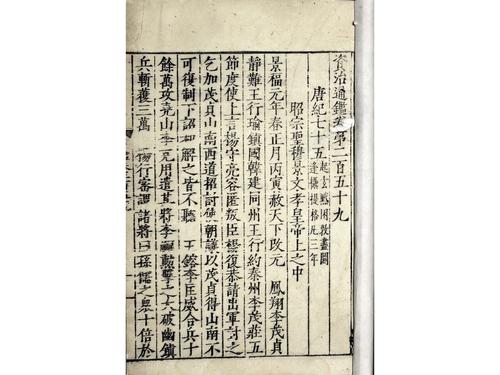 資治通鑑卷第二百五十九
唐紀七十五
起玄黓困敦盡閼
逢攝提格凡三年
昭宗聖穆景文孝皇帝上之中
景福元年春正月丙寅赦天下改元 鳳翔李茂貞
靜難王行瑜鎮國韓建同州王行約秦州李茂莊五
節度使上言楊守亮容匿叛臣楊復恭請出軍討之
乞加茂貞山南西道招討使朝議以茂貞得山南不
可復制下詔和解之皆不聽 王鎔李匡威合兵十
餘萬攻堯山李克用遣其將李勳擊之大破幽鎮
兵斬獲三萬 楊行密謂諸將曰孫儒之衆十倍於